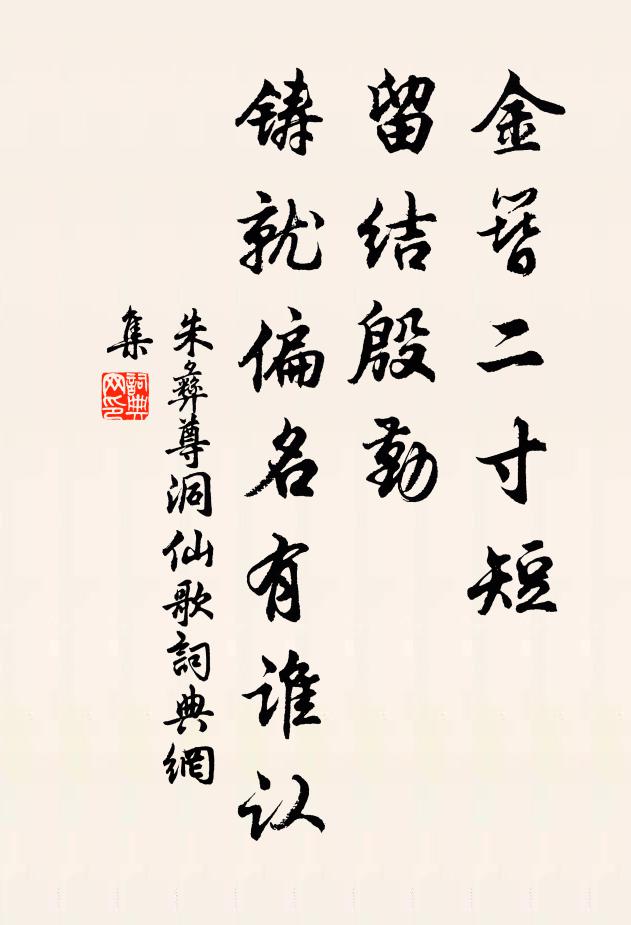 金簪二寸短
留结殷勤
铸就偏名有谁认
朱彝尊洞仙歌詞典網
集
詞典网印